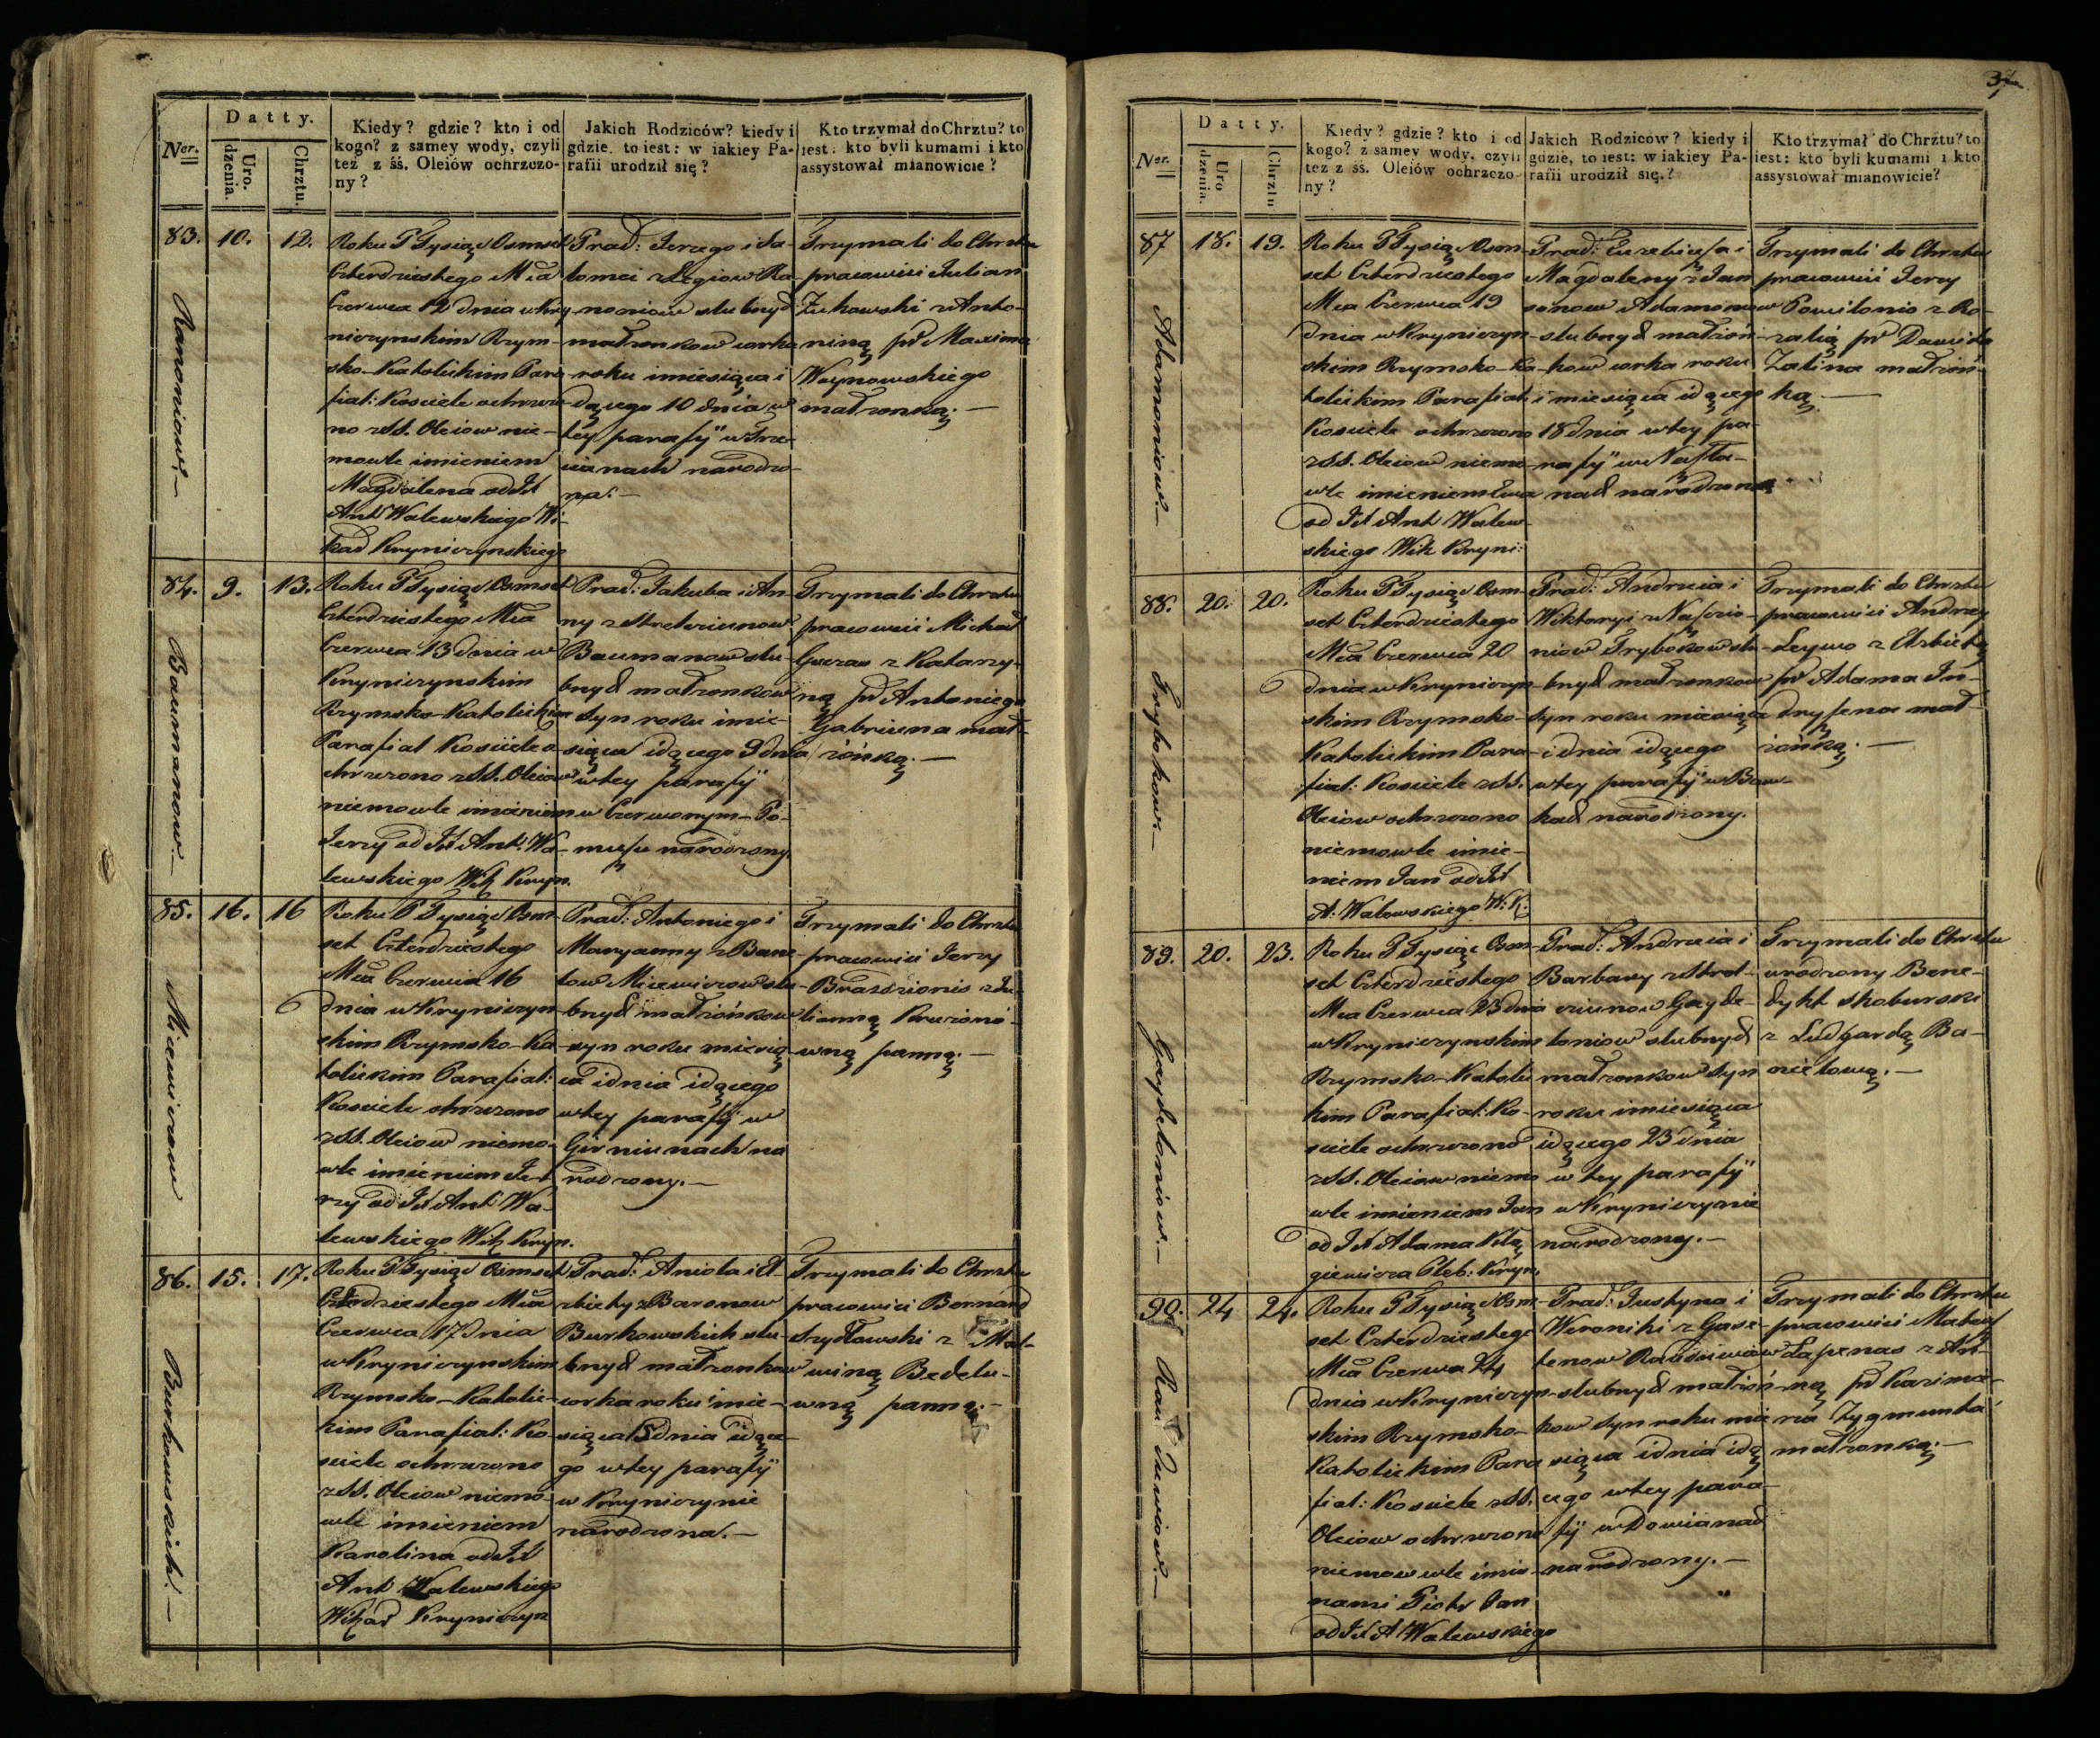 Ner.
Datty.
Uro.
dzenia.
Chrztu.
Kiedy? gdzie? kto i od
kogo? z samey wody, czyli
też z śś. Oleiów ochrzczo-
ny?
Jakich Rodziców? kiedy i
gdzie, to iest: w iakiey Pa-
rafii urodził się?
Kto trzymał do Chrztu? to
iest: kto byli kumami i kto
assystował mianowicie?
83. 10. 12.
Roku T Tysiąc Osmset
Czterdziestego Mca
Czerwca 12 dnia w Kry-
niczynskim Rzym-
sko-Katolickim Para-
fial: Kosciele ochrzczo-
no z SS. Oleiow nie-
mowle imieniem
Magdalena od Jx
Ant Walewskiego Wi-
kad Kryniczynskiego
Prad: Jerzego i Sa-
lomei z Legiow Ra-
noniow slubnych
małzonkow corka
roku i miesiąca i
dącego 10 dnia w
tey parafÿ w Trze-
cianach narodzo-
na. —
Trzymali do Chrztu
pracowici Julian
Zukowski z Anto-
niną pd Maxima
Woynowskiego
małzonką. —
84. 9. 13.
Baumanow —
Roku T Tysiąc Osmset
Czterdziestego Mca
Czerwca 13 dnia w
Kryniczynskim
Rzymsko-Katolickim
Parafial Kosciele o-
chrzczono z SS. Oleiow
niemowle imieniem
Jerzy od Jx Ant. Wa-
lewskiego Wik Kryn.
Prad: Jakuba i An-
ny z Strelciunow
Baumanow slu-
bnych małzonkow
Syn roku i mie-
siąca idącego 9 dnia
w tey parafÿ
w Czerwonym-Po-
muszu narodzony.
Trzymali do Chrztu
pracowici Michał
z Katarzy-
ną pd Antoniego
Gabriuna mał-
żónką. —
85. 16. 16
Micewiczow
Roku T Tysiąc Osm-
set Czterdziestego
Mca Czerwca 16
dnia w Kryniczyn-
skim Rzymsko-Ka-
tolickim Parafial:
Kosciele chrzczono
z SS. Oleiow niemo-
wle imieniem Je-
rzy od Jx Ant Wa-
lewskiego Wik Kryn.
Prad: Antoniego i
Maryanny z Bane-
low Micewiczow slu-
bnych małżónkow
syn roku miesią-
ca i dnia idącego
w tey parafÿ w
Girniunach na
rodzony. —
Trzymali do Chrztu
pracowici Jerzy
Brazdzionis z Ju-
lianną Kruzionó-
wną panną. —
86. 15. 17.
Burkowskich. —
Roku T Tysiąc Osmset
Czterdziestego Mca
Czerwca 17 dnia
w Kryniczynskim
Rzymsko-Katolic-
kim Parafial: Ko-
sciele ochrzczono
z SS. Oleiow niemo-
wle imieniem
Karolina od Jx
Ant Walewskiego
Wikad Kryniczyn
Prad: Aniola i El-
zbiety z Baronow
Burkowskich slu-
bnych małzonkow
corka roku i mie-
siąca 15 dnia idące-
go w tey parafÿ
w Kryniczynie
narodzona. —
Trzymali do Chrztu
pracowici Bernard
Strydłowski z Mal-
winą Bedelu-
wną panną. —
37
Ner.
Datty.
Uro
dzenia.
Chrztu
Kiedy? gdzie? kto i od
kogo? z samey wody, czyli
też z śś. Oleiów ochrzczo-
ny?
Jakich Rodziców? kiedy i
gdzie, to iest: w iakiey Pa-
rafii urodził się.?
Kto trzymał do Chrztu? to
iest: kto byli kumami i kto
assystował mianowicie?
87 18. 19.
Adamoniow. —
Roku T Tysiąc Osm-
set Czterdziestego
Mca Czerwca 19
dnia w Kryniczyn-
skim Rzymsko-Ka-
tolickim Parafial:
Kosciele ochrzczono
z SS. Oleiow niemo-
wle imieniem Ewa
od Jx Ant Walew-
skiego Wik Kryni:
Prad: Euzebiusa i
Magdaleny z Jan
sonow Adamonow
slubnych małżón-
kow corka roku
i miesiąca idącego
18 dnia w tey pa-
rafÿ w
nach narodzona
Trzymali do Chrztu
pracowici Jerzy
Powilonis z Ro-
zalią pd Dawida
Zalina małżón-
ką. —
88. 20. 20.
Trybokow. —
Roku T Tysiąc Osm-
set Czterdziestego
Mca Czerwca 20
dnia w Kryniczyn-
skim Rzymsko-
Katolickim Para-
fial: Kosciele z SS.
Oleiow ochrzczono
niemowle imie-
niem Jan od Jx
A: Walewskiego W: K:
Prad: Andrzeia i
Wiktoryi z
niow Trybokow slu-
bnych małzonkow
Syn roku miesiąca
i dnia idącego
w tey parafÿ w Baw-
kach narodzony.
Trzymali do Chrztu
pracowici Andrzey
Leywo z Elzbietą
pd Adama In-
drysena mał-
żónką. —
89. 20. 23.
Gaydeloniow. —
Roku T Tysiąc Osm-
set Czterdziestego
Mca Czerwca 23 dnia
w Kryniczynskim
Rzymsko-Katolic-
kim Parafial: Ko-
sciele ochrzczono
z SS. Oleiow niemo
wle imieniem Jan
od Jx Adama Kłą-
giewicza Pleb: Kryn.
Prad: Andrzeia i
Barbary z Strel-
ciunow Gayde-
loniow slubnych
małzonkow Syn
roku i miesiąca
idącego 23 dnia
w tey parafÿ
w Kryniczynie
narodzony. —
Trzymali do Chrztu
urodzony Bene-
dykt Skoburski
z Ludgardą Ba-
niclową. —
90. 24 24.
Roku T Tysiąc Osm-
set Czterdziestego
Mca Czerwca 24
dnia w Kryniczyn-
skim Rzymsko-
Katolickim Para
fial: Kosciele z SS.
Oleiow ochrzczono
niemowle imio-
nami Piotr Jan
od Jx A Walewskiego
Prad: Justyna i
Weroniki z Gasz-
tenow
slubnych małżón-
kow Syn roku mie
siąca i dnia idą
cego w tey para-
fÿ w Dowianach
narodzony. —
Trzymali do Chrztu
pracowici Mateusz
Łapenas z An-
ną pd Kazimie-
rza Zygmunta
małzonką. —